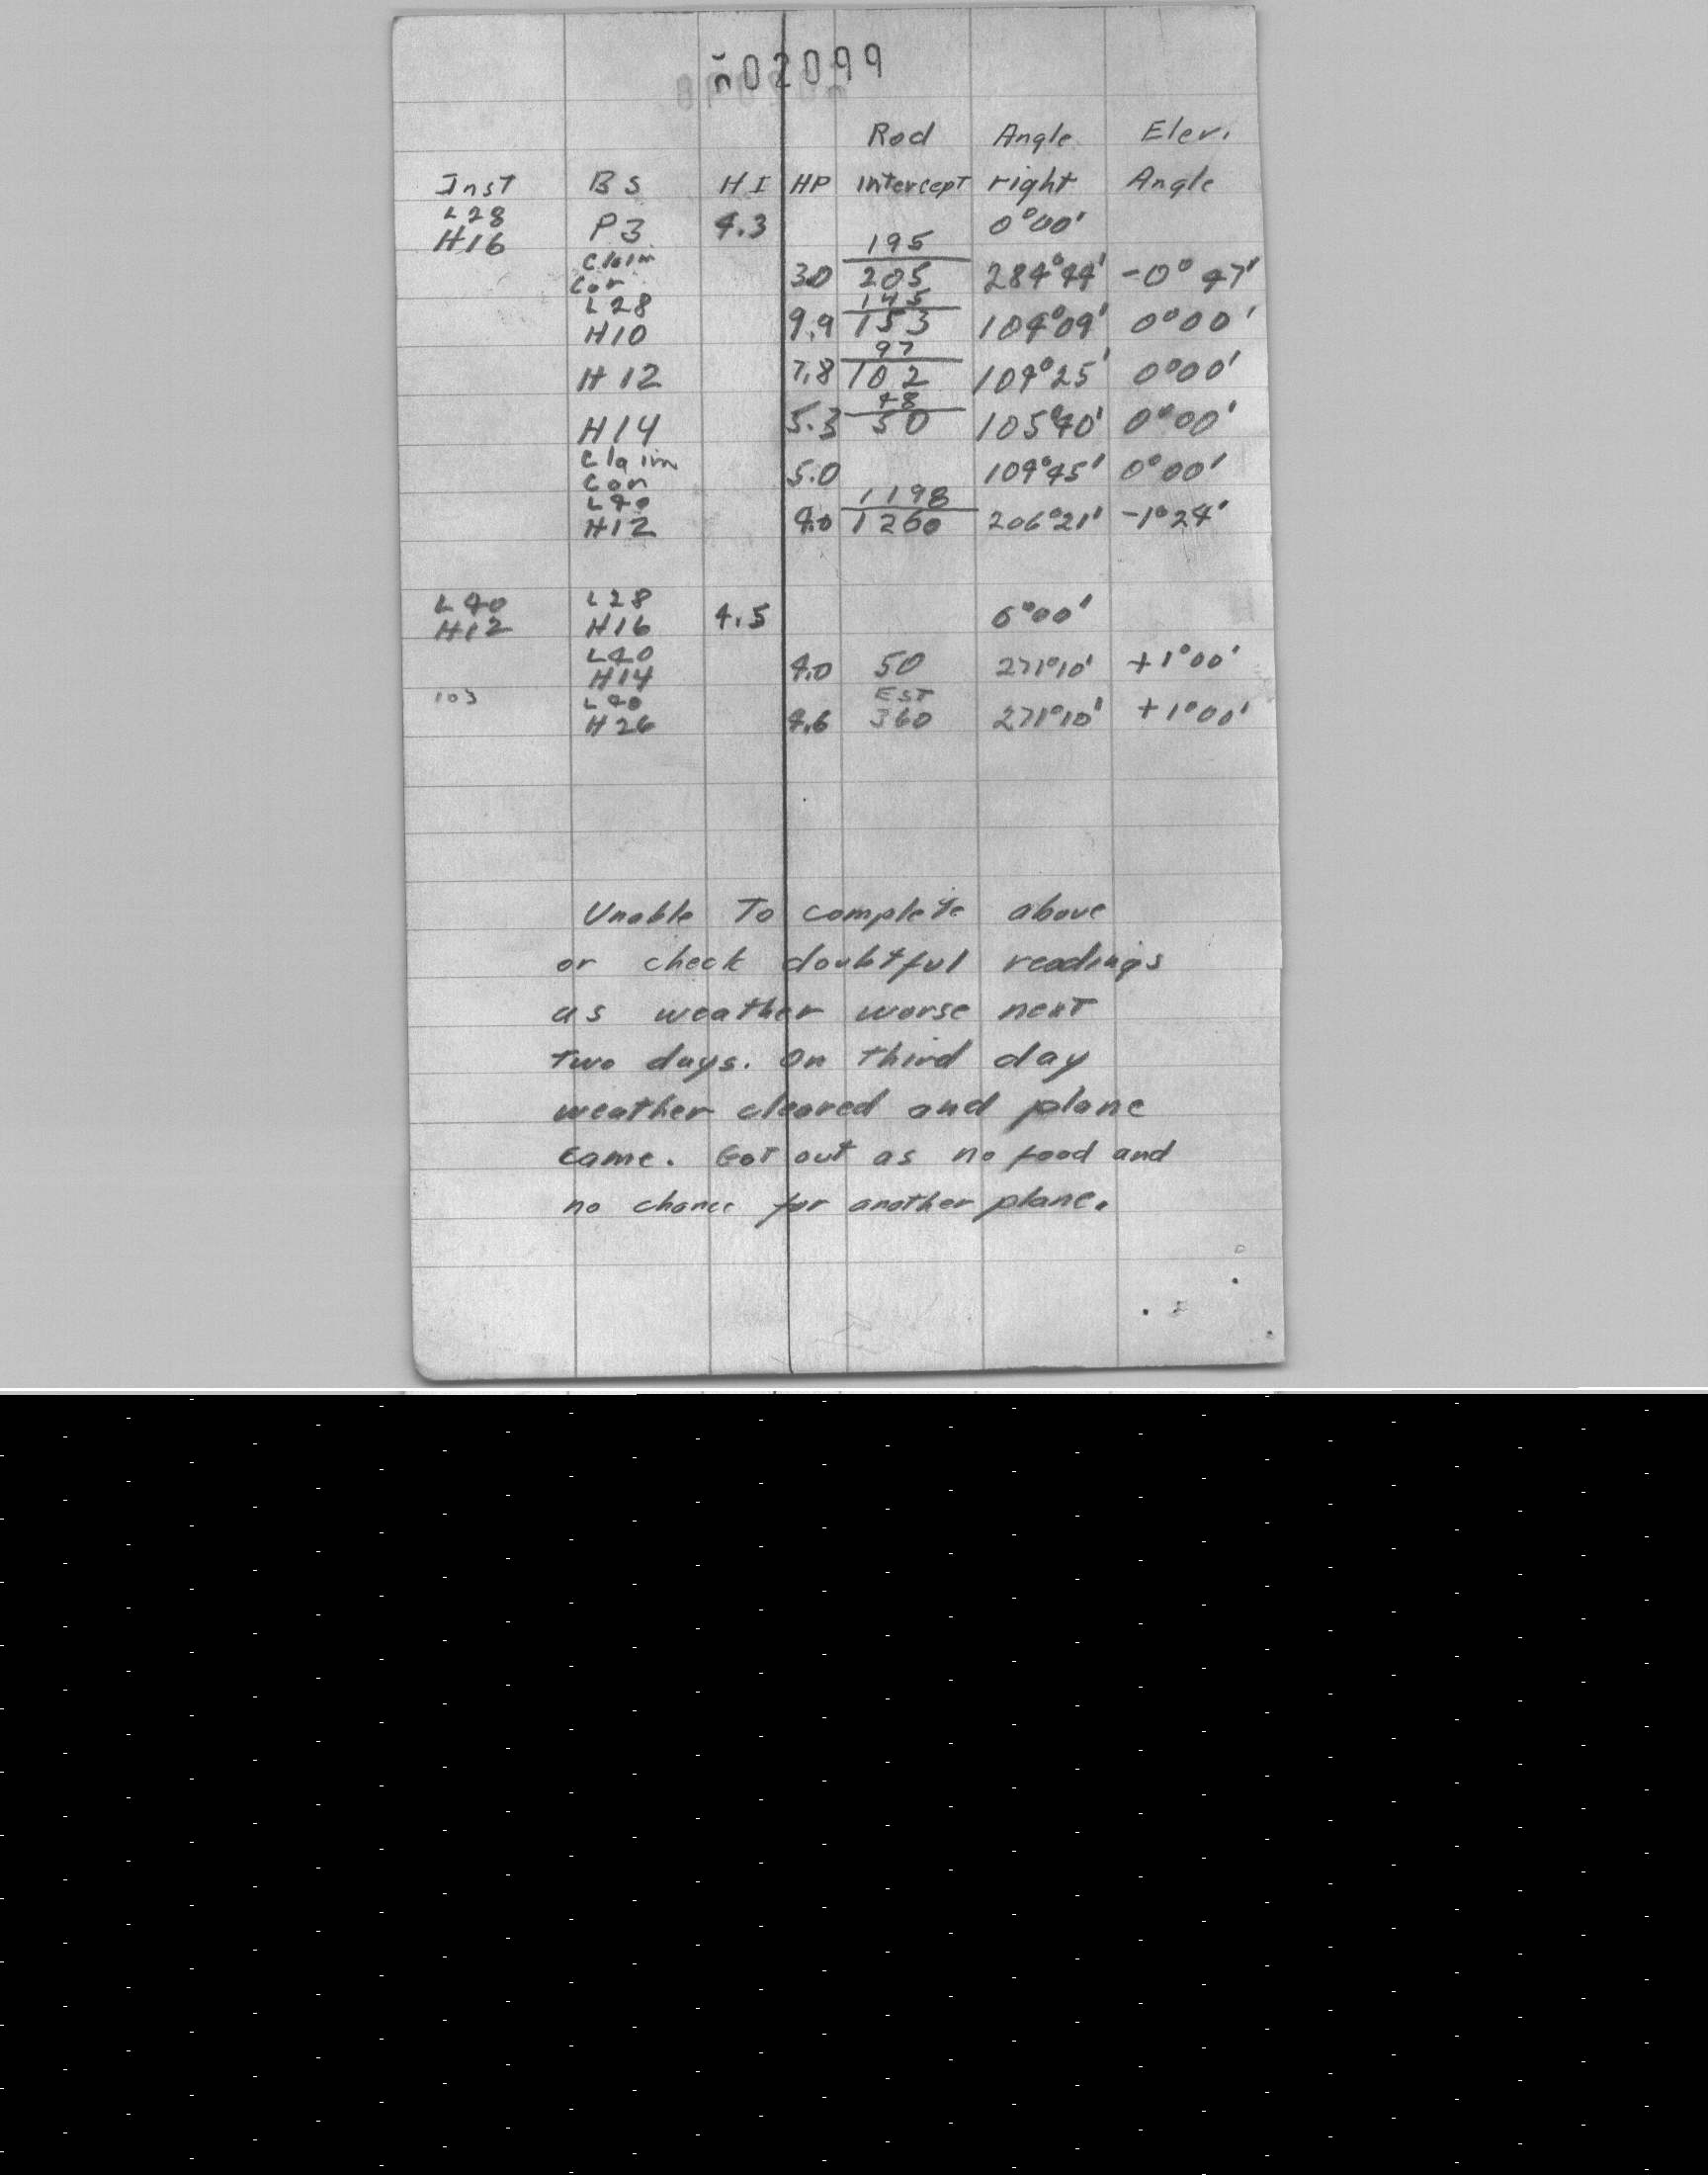 n02099
Rod Angle Elev.
Inst BS HI HP intercept right Angle
L28 H16 P3 4.3 0°00'
195
Claim Cor 3.0 205 284°44' -0°47'
145
L28 H10 9.9 153 104°09' 0°00'
97
H12 7.8 102 104°25' 0°00'
48
H14 5.3 50 105°40' 0°00'
Claim Cor 5.0 104°45' 0°00'
1198
L40 H12 4.0 1260 206°21' -1°24'
L40 H12 L28 H16 4.5 0°00'
L40 H14 4.0 50 271°10' +1°00'
EST
103 L40 H26 4.6 360 271°10' +1°00'
Unable To complete above
or check doubtful readings
as weather worse next
two days. On third day
weather cleared and plane
came. Got out as no food and
no chance for another plane.